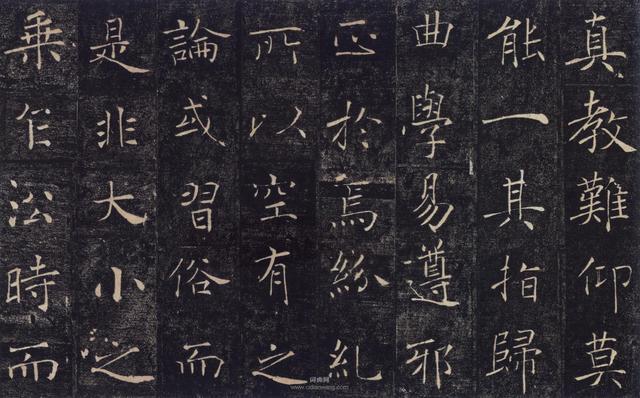 真教難仰莫
能一其指歸
曲學易遵邪
正於焉紛糺
所以空有之
論或習俗而
是非大小之
乘乍沿時而
词典网
www.cidianwang.com